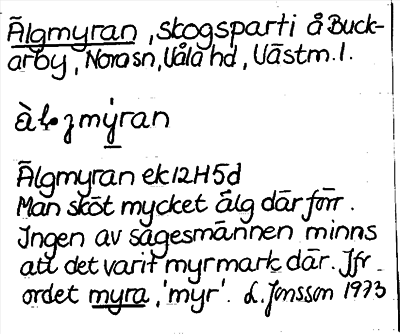 Älgmyran, skogsparti å Buck-
arby, Nora sn, Våla hd, Västm. l.
myran
Älgmyran ek 12H5d
Man sköt mycket älg där förr.
Ingen av sagesmännen minns
att det varit myrmark där. Jfr
ordet myra, 'myr'. L. Jonsson 1973